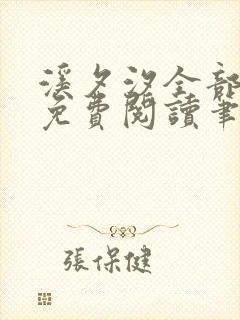 溪夕汐全部
免費閱讀筆
張保健